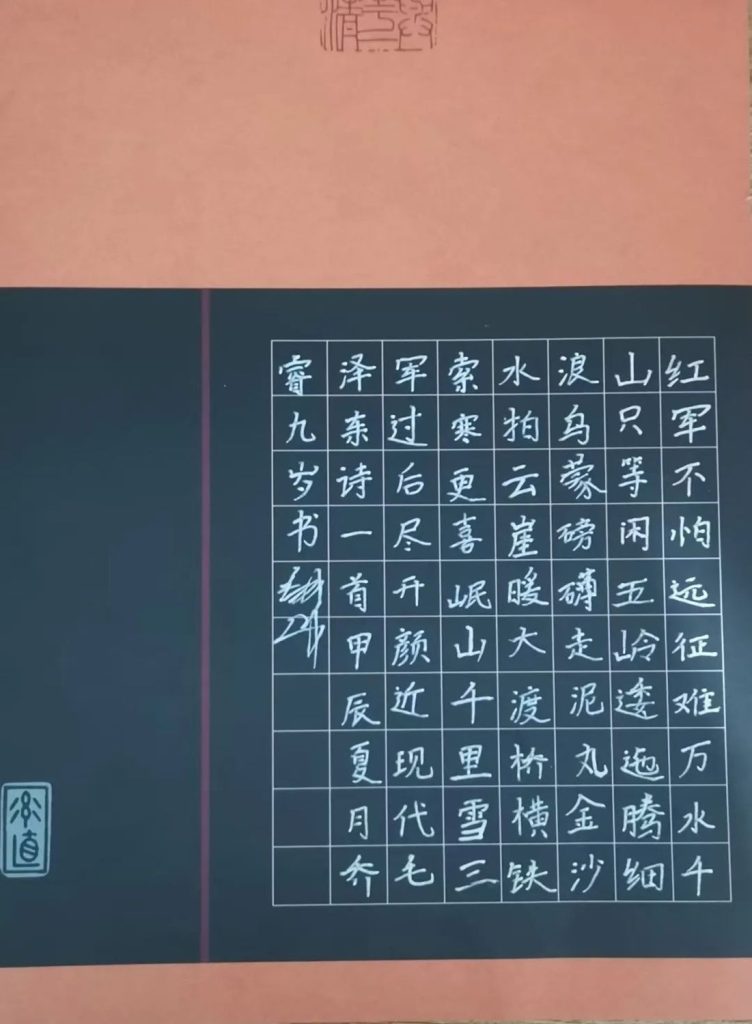 红军不怕远征难万水千
山只等闲五岭逶迤腾细
浪乌蒙磅礴走泥丸金沙
水拍云崖暖大渡桥横铁
索寒更喜岷山千里雪三
军过后尽开颜近现代毛
泽东诗一首甲辰夏月乔
睿九岁书